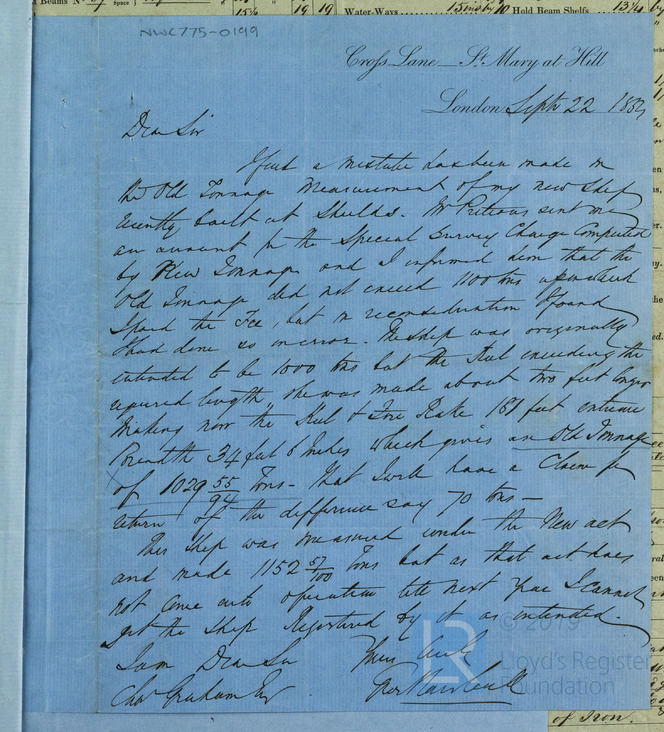 15 ½ 19 19 Water-Ways 15 ins by 10 Hold Beam Shelfs
NWC775-0199
Cross Lane — St. Mary at Hill
London Septr 22 185
Dear Sir
I find a mistake has been made in
the Old Tonnage Measurement of my new ship
recently built at Shields. Mr Pretious sent me
an account for the Special Survey Charge Computed
by New Tonnage and I informed him that the
Old Tonnage did not exceed 1100 tons upon which
I paid the Fee, but on reconsideration I found
I had done so in error. The ship was originally
intended to be 1000 tons but the Keel exceeding the
required length, she was made about two feet longer
Making now the Keel & Fore Rake 181 feet extreme
Breadth 34 feet 6 Inches which gives an Old Tonnage
of 1029 55/94 Tons - that I will have a Claim for
return of the difference say 70 tons —
This ship was measured under the New act
and made 1152 57/100 Tons but as that act does
not come into operation till next year I cannot
get the ship Registered by it as intended.
I am Dear Sir Yours truly
Chas Graham Esq Geo Marshall
© 2019
LR
Lloyd's Register
Foundation
of Iron.